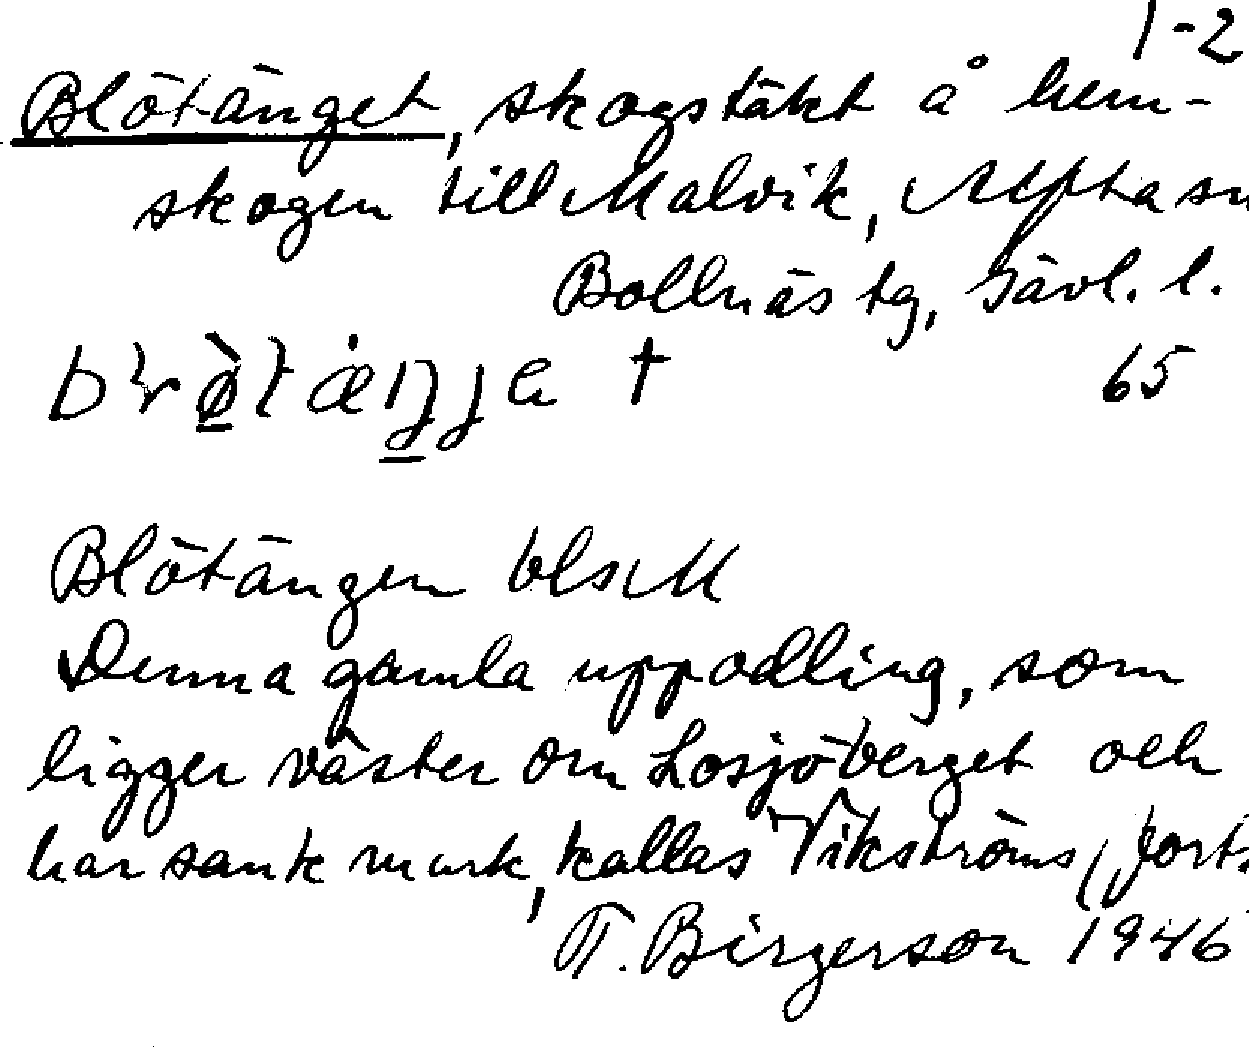 1-2
Blötänget, skogstäkt å hem-
skogen till Malvik, Alfta sn
Bollnäs tg, Gävl. l.
65
Blötängen blsM
Denna gamla uppodling, som
ligger väster om Losjöberget och
har sank mark, kallas Vikströms (forts.
T. Birgerson 1946